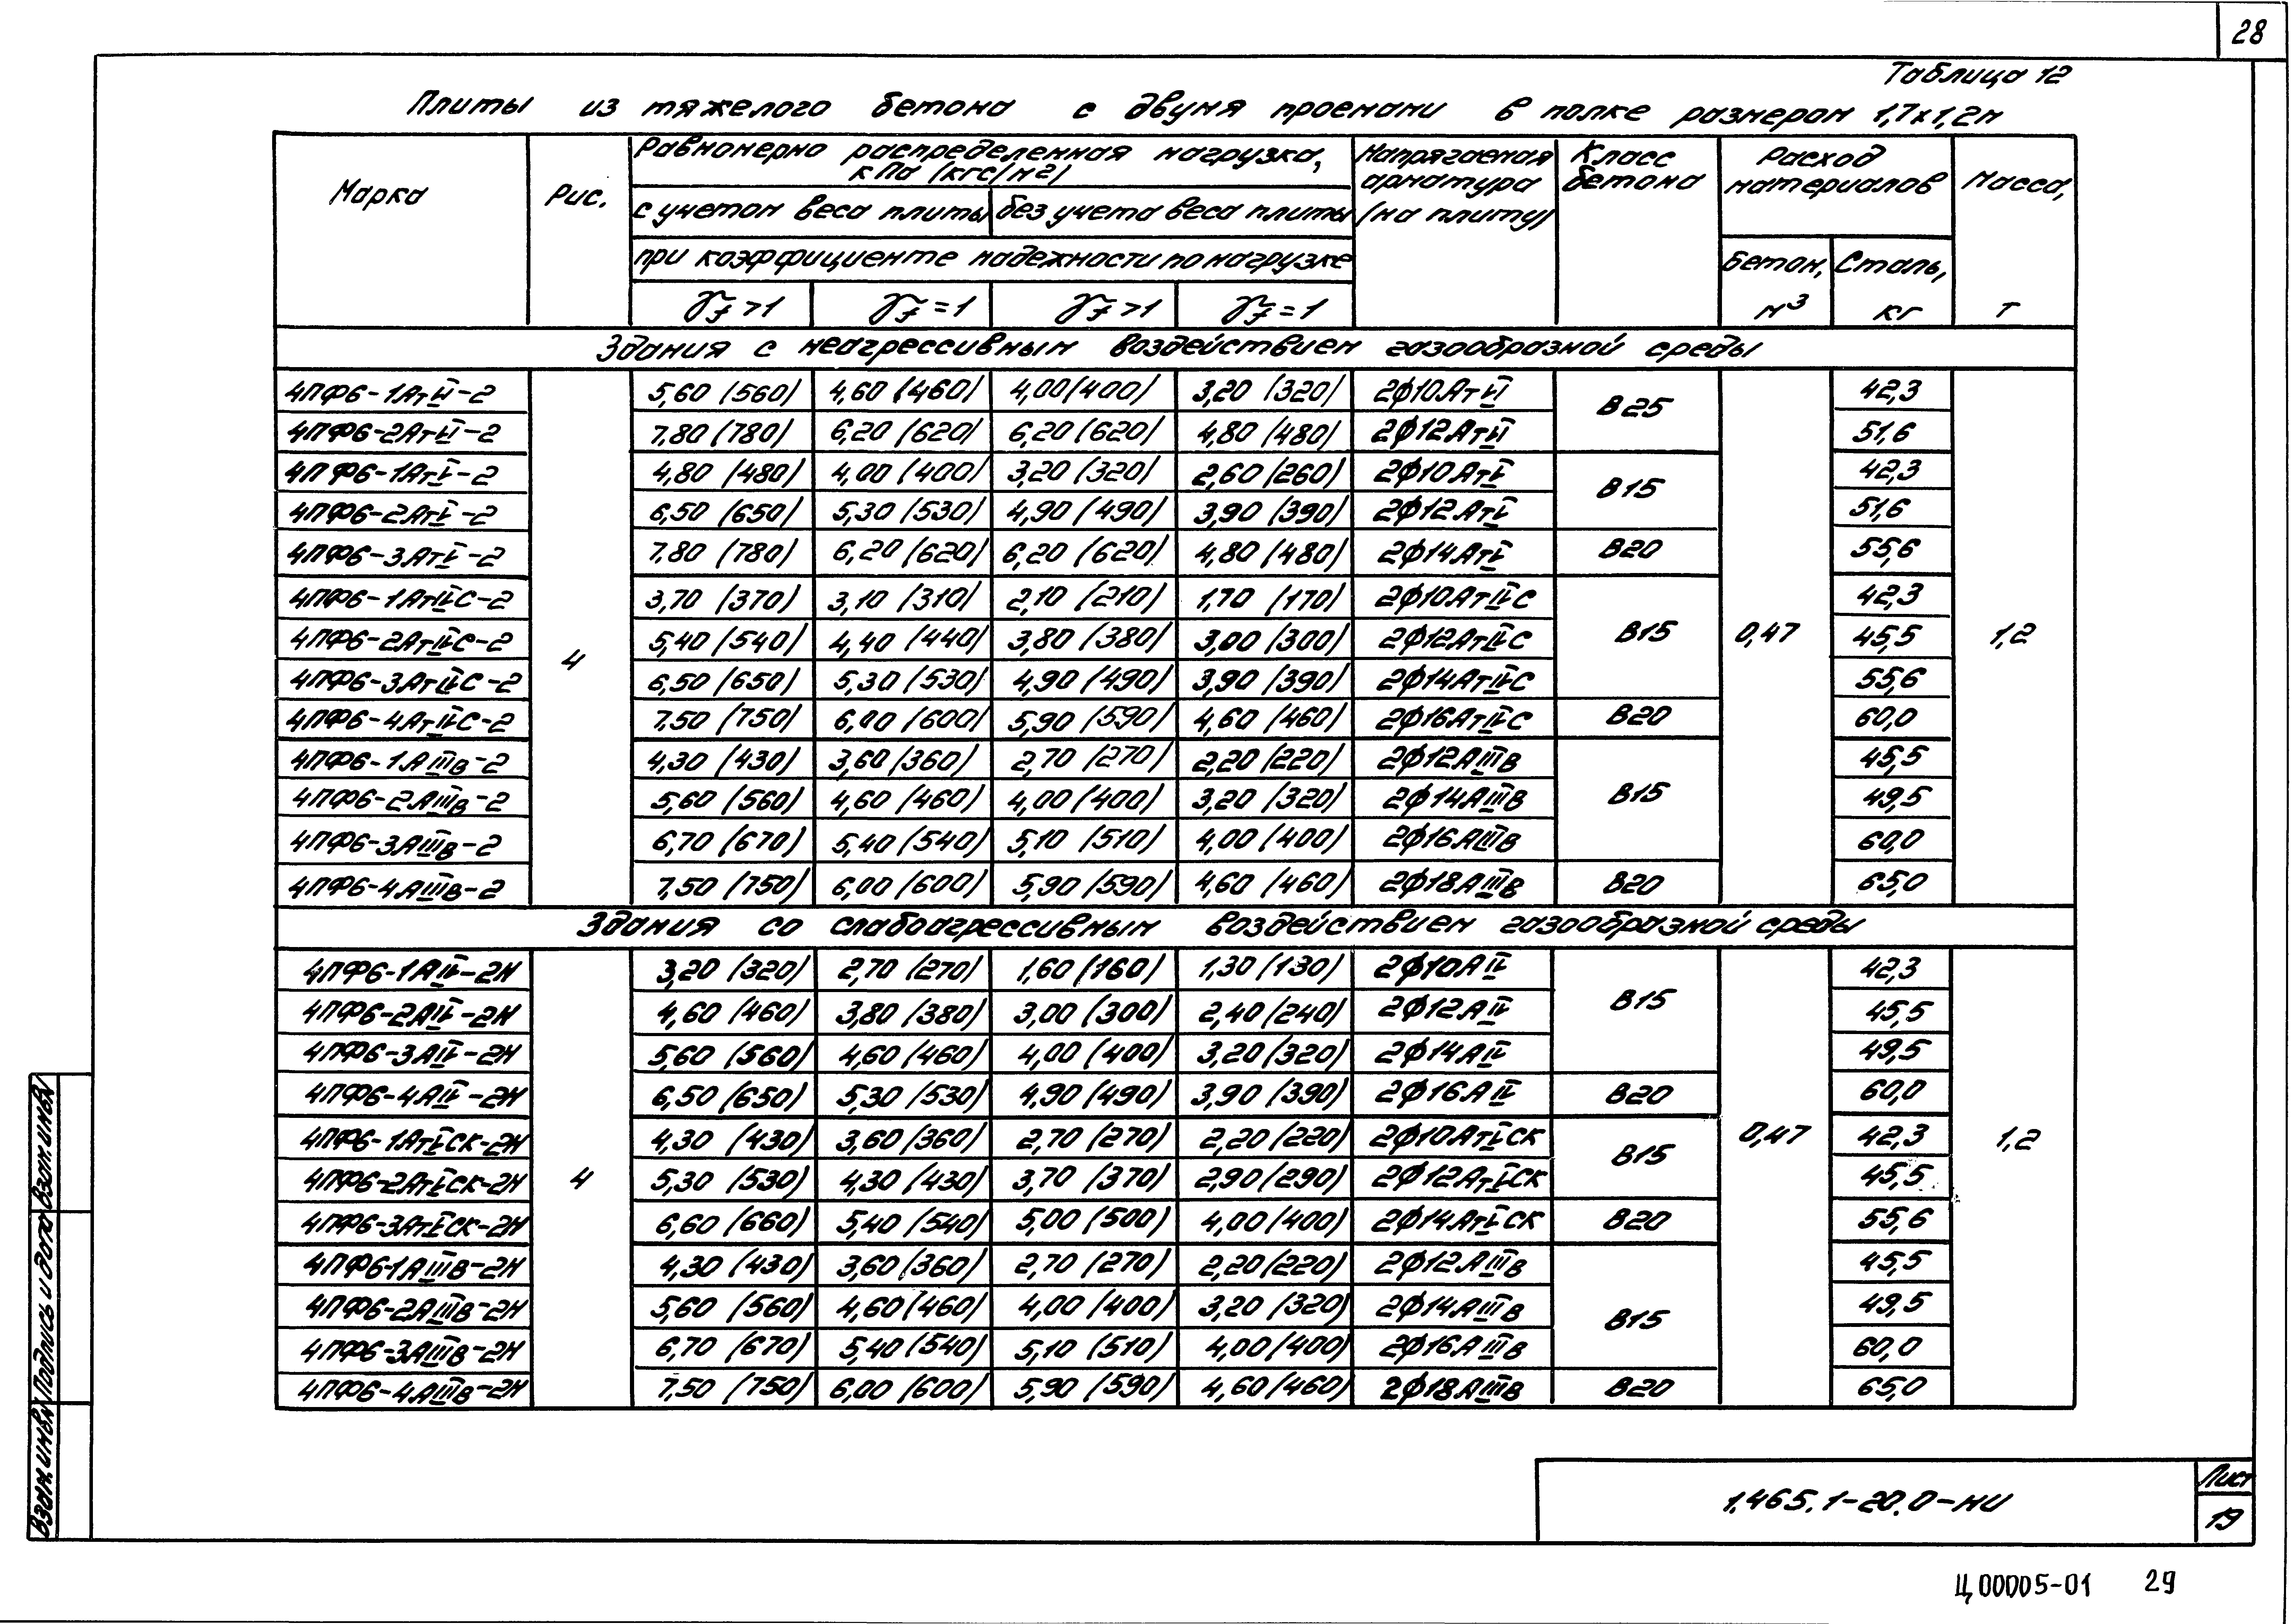 28
Таблица 12
Плиты из тяжелого бетона с двумя проемами в полке размером 1,7х1,2м
Марка Рис. Равномерно распределенная нагрузка, кПа (кгс/м2) Напрягаемая арматура (на плиту) Класс бетона Расход материалов Масса, т
с учетом веса плиты без учета веса плиты
при коэффициенте надежности по нагрузке Бетон, м3 Сталь, кг
γf >1 γf =1 γf >1 γf =1
Здания с неагрессивным воздействием газообразной среды
4ПФ6-1АтVI-2 5,60 (560) 4,60 (460) 4,00 (400) 3,20 (320) 2ф10АтVI В25 42,3
4ПФ6-2АтVI-2 7,80 (780) 6,20 (620) 6,20 (620) 4,80 (480) 2ф12АтVI 51,6
4ПФ6-1АтV-2 4,80 (480) 4,00 (400) 3,20 (320) 2,60 (260) 2ф10АтV В15 42,3
4ПФ6-2АтV-2 6,50 (650) 5,30 (530) 4,90 (490) 3,90 (390) 2ф12АтV 51,6
4ПФ6-3АтV-2 7,80 (780) 6,20 (620) 6,20 (620) 4,80 (480) 2ф14АтV В20 55,6
4ПФ6-1АтIVС-2 3,70 (370) 3,10 (310) 2,10 (210) 1,70 (170) 2ф10АтIVС 42,3
4ПФ6-2АтIVС-2 4 5,40 (540) 4,40 (440) 3,80 (380) 3,00 (300) 2ф12АтIVС В15 0,47 45,5 1,2
4ПФ6-3АтIVС-2 6,50 (650) 5,30 (530) 4,90 (490) 3,90 (390) 2ф14АтIVС 55,6
4ПФ6-4АтIVС-2 7,50 (750) 6,00 (600) 5,90 (590) 4,60 (460) 2ф16АтIVС В20 60,0
4ПФ6-1АIIIв-2 4,30 (430) 3,60 (360) 2,70 (270) 2,20 (220) 2ф12АIIIв 45,5
4ПФ6-2АIIIв-2 5,60 (560) 4,60 (460) 4,00 (400) 3,20 (320) 2ф14АIIIв В15 49,5
4ПФ6-3АIIIв-2 6,70 (670) 5,40 (540) 5,10 (510) 4,00 (400) 2ф16АIIIв 60,0
4ПФ6-4АIIIв-2 7,50 (750) 6,00 (600) 5,90 (590) 4,60 (460) 2ф18АIIIв В20 65,0
Здания со слабоагрессивным воздействием газообразной среды
4ПФ6-1АIV-2Н 3,20 (320) 2,70 (270) 1,60 (160) 1,30 (130) 2ф10АIV 42,3
4ПФ6-2АIV-2Н 4,60 (460) 3,80 (380) 3,00 (300) 2,40 (240) 2ф12АIV В15 45,5
4ПФ6-3АIV-2Н 5,60 (560) 4,60 (460) 4,00 (400) 3,20 (320) 2ф14АIV 49,5
4ПФ6-4АIV-2Н 6,50 (650) 5,30 (530) 4,90 (490) 3,90 (390) 2ф16АIV В20 60,0
4ПФ6-1АтVСК-2Н 4,30 (430) 3,60 (360) 2,70 (270) 2,20 (220) 2ф10АтVСК В15 0,47 42,3 1,2
4ПФ6-2АтVСК-2Н 4 5,30 (530) 4,30 (430) 3,70 (370) 2,90 (290) 2ф12АтVСК 45,5
4ПФ6-3АтVСК-2Н 6,60 (660) 5,40 (540) 5,00 (500) 4,00 (400) 2ф14АтVСК В20 55,6
4ПФ6-1АIIIв-2Н 4,30 (430) 3,60 (360) 2,70 (270) 2,20 (220) 2ф12АIIIв 45,5
4ПФ6-2АIIIв-2Н 5,60 (560) 4,60 (460) 4,00 (400) 3,20 (320) 2ф14АIIIв В15 49,5
4ПФ6-3АIIIв-2Н 6,70 (670) 5,40 (540) 5,10 (510) 4,00 (400) 2ф16АIIIв 60,0
4ПФ6-4АIIIв-2Н 7,50 (750) 6,00 (600) 5,90 (590) 4,60 (460) 2ф18АIIIв В20 65,0
Взам.инв.№
Подпись и дата
Взам.инв.№
1.465.1-20.0-НИ
Лист
19
Ц00005-01 29